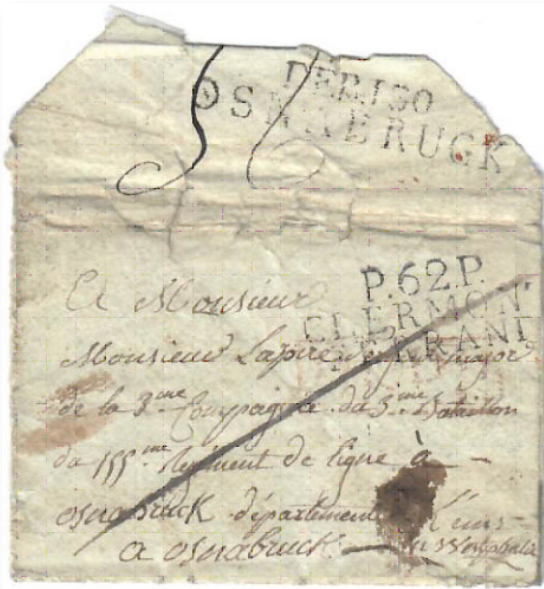 DEB.130
OSNABRUCK
P.62.P.
CLERMON
FERRAND
A Monsieur
Monsieur Lapire major
de la 3me Compagnie du 3me Bataillon
du 155me Regiment de ligne à
osnabruck département l'ems
a osnabruck Westphalie